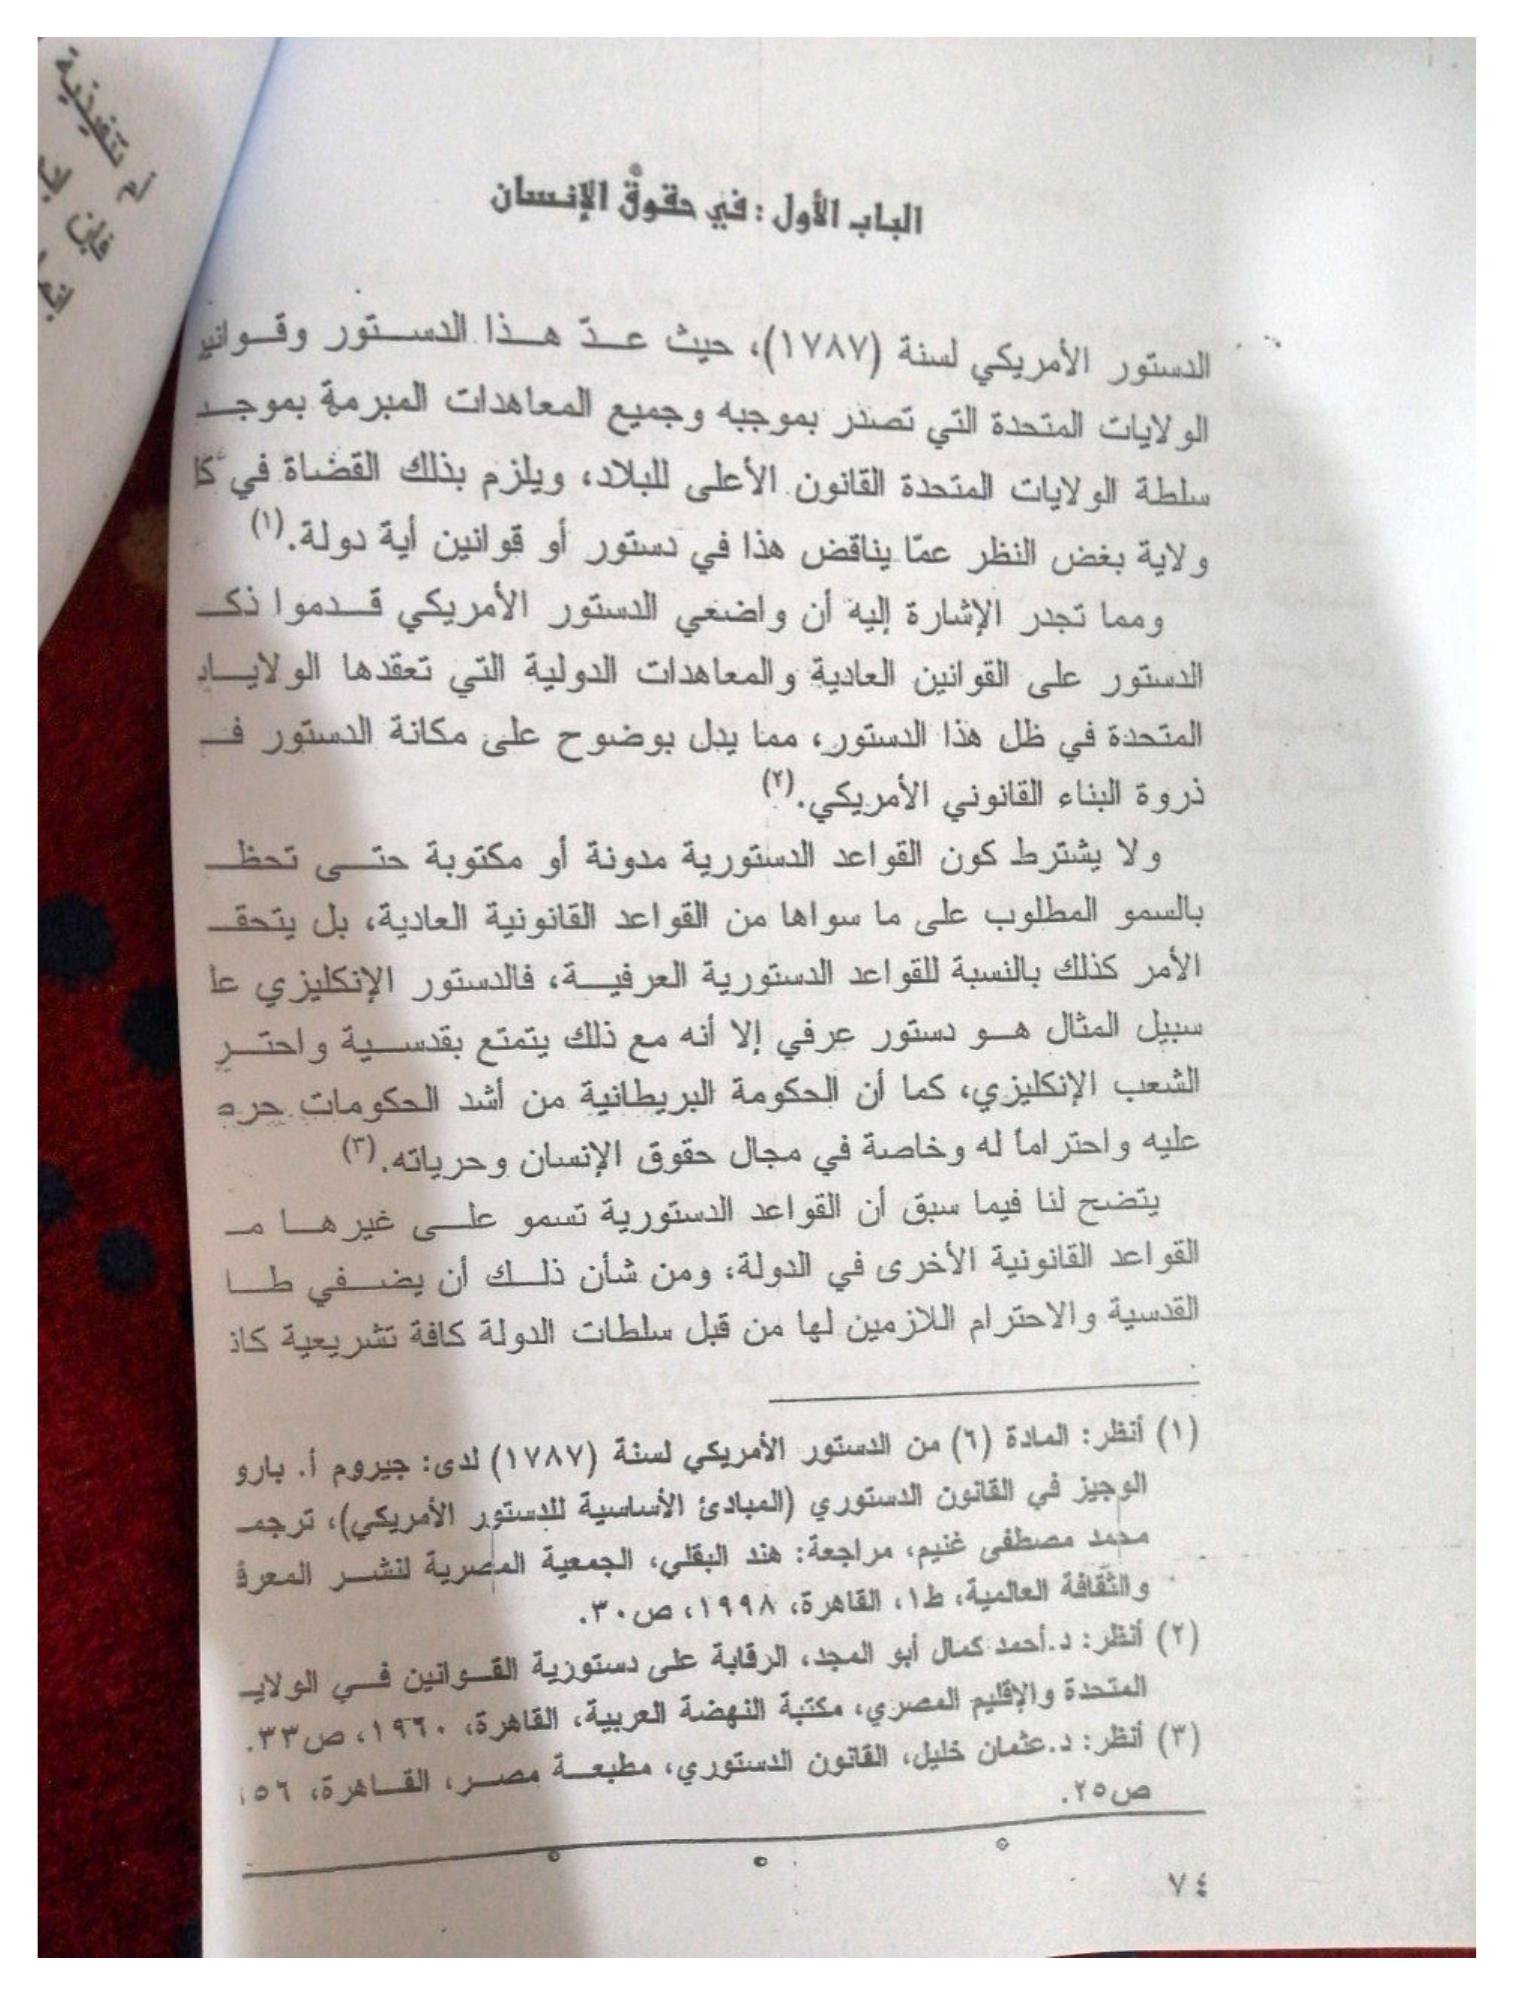 الباب الأول: في حقوق الإنسان
الدستور الأمريكي لسنة (١٧٨٧)، حيث عدّ هذا الدستور وقوانير
الولايات المتحدة التي تصدر بموجبه وجميع المعاهدات المبرمة بموجـ
سلطة الولايات المتحدة القانون الأعلى للبلاد، ويلزم بذلك القضاة في كا
ولاية بغض النظر عمّا يناقض هذا في دستور أو قوانين أية دولة.(١)
ومما تجدر الإشارة إليه أن واضعي الدستور الأمريكي قدموا ذكـ
الدستور على القوانين العادية والمعاهدات الدولية التي تعقدها الولايـا
المتحدة في ظل هذا الدستور، مما يدل بوضوح على مكانة الدستور فـ
ذروة البناء القانوني الأمريكي.(٢)
ولا يشترط كون القواعد الدستورية مدونة أو مكتوبة حتى تحظـ
بالسمو المطلوب على ما سواها من القواعد القانونية العادية، بل يتحقـ
الأمر كذلك بالنسبة للقواعد الدستورية العرفية، فالدستور الإنكليزي عا
سبيل المثال هو دستور عرفي إلا أنه مع ذلك يتمتع بقدسية واحتر
الشعب الإنكليزي، كما أن الحكومة البريطانية من أشد الحكومات حرص
عليه واحتراماً له وخاصة في مجال حقوق الإنسان وحرياته.(٣)
يتضح لنا فيما سبق أن القواعد الدستورية تسمو على غيرها مـ
القواعد القانونية الأخرى في الدولة، ومن شأن ذلك أن يضفي طا
القدسية والاحترام اللازمين لها من قبل سلطات الدولة كافة تشريعية كانـ
(١) أنظر: المادة (٦) من الدستور الأمريكي لسنة (١٧٨٧) لدى: جيروم أ. بارو
الوجيز في القانون الدستوري (المبادئ الأساسية للدستور الأمريكي)، ترجمـ
محمد مصطفى غنيم، مراجعة: هند البقلي، الجمعية المصرية لنشر المعرفـ
والثقافة العالمية، ط١، القاهرة، ١٩٩٨، ص٣٠.
(٢) أنظر: د.أحمد كمال أبو المجد، الرقابة على دستورية القوانين في الولايـ
المتحدة والإقليم المصري، مكتبة النهضة العربية، القاهرة، ١٩٦٠، ص٣٣.
(٣) أنظر: د.عثمان خليل، القانون الدستوري، مطبعة مصر، القاهرة، ٥٦
ص٢٥.
٧٤